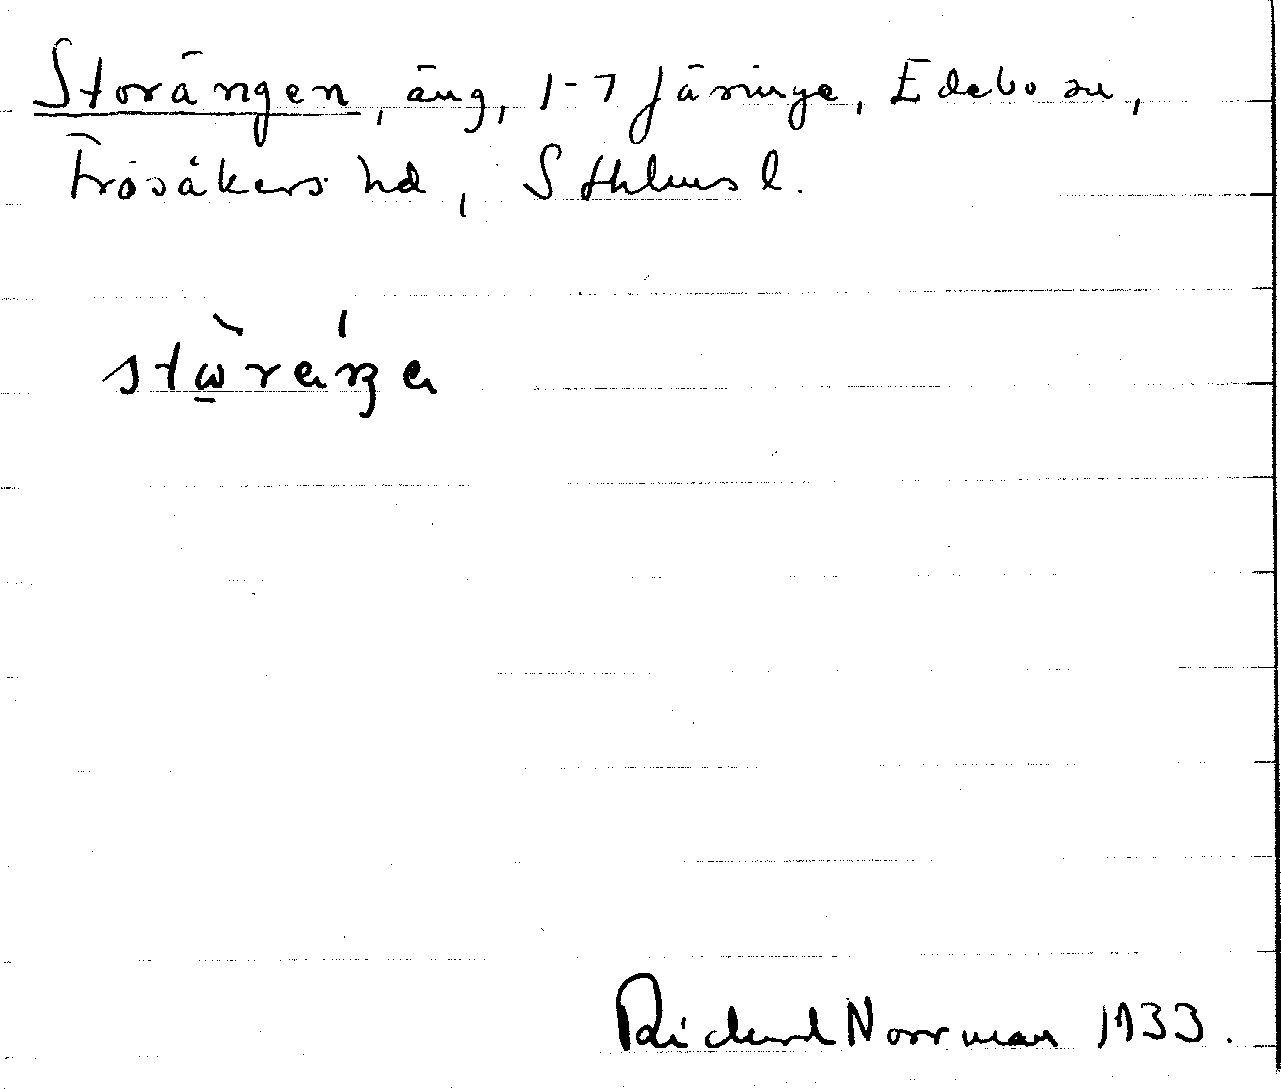 Storängen, äng, 1-7 Järinge, Edebo sn,
Frösåkers hd, Sthlms l.
Richard Norrman 1933.